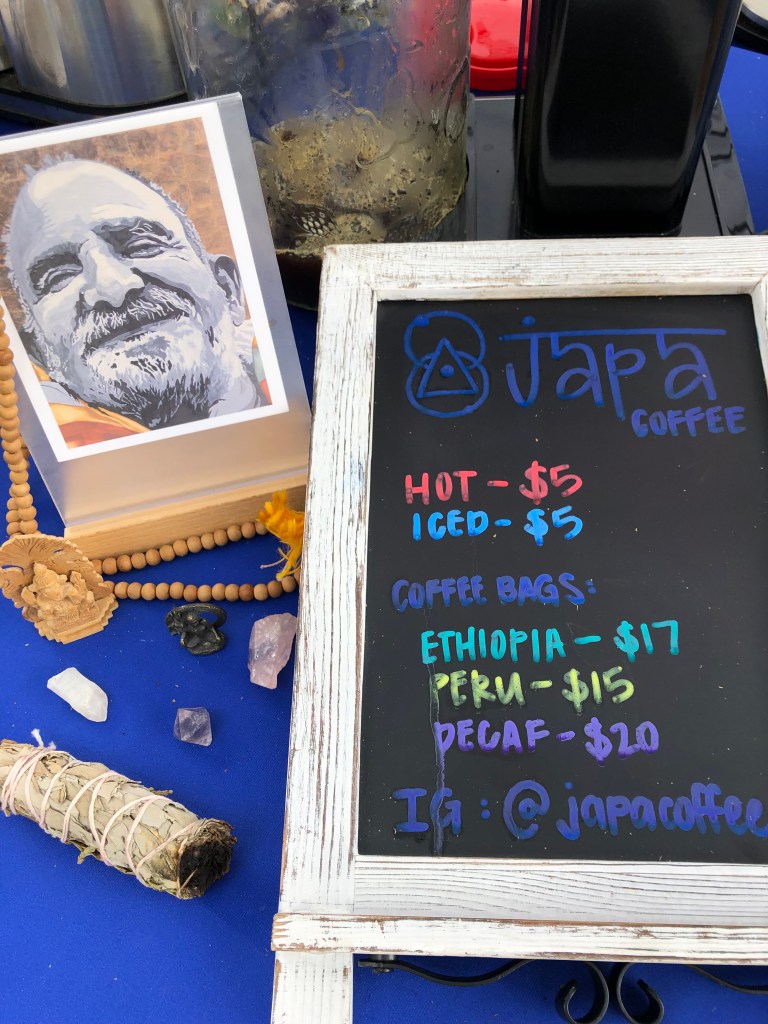 japa
COFFEE
HOT - $5
ICED - $5
COFFEE BAGS:
ETHIOPIA - $17
PERU - $15
DECAF - $20
IG: @japacoffee